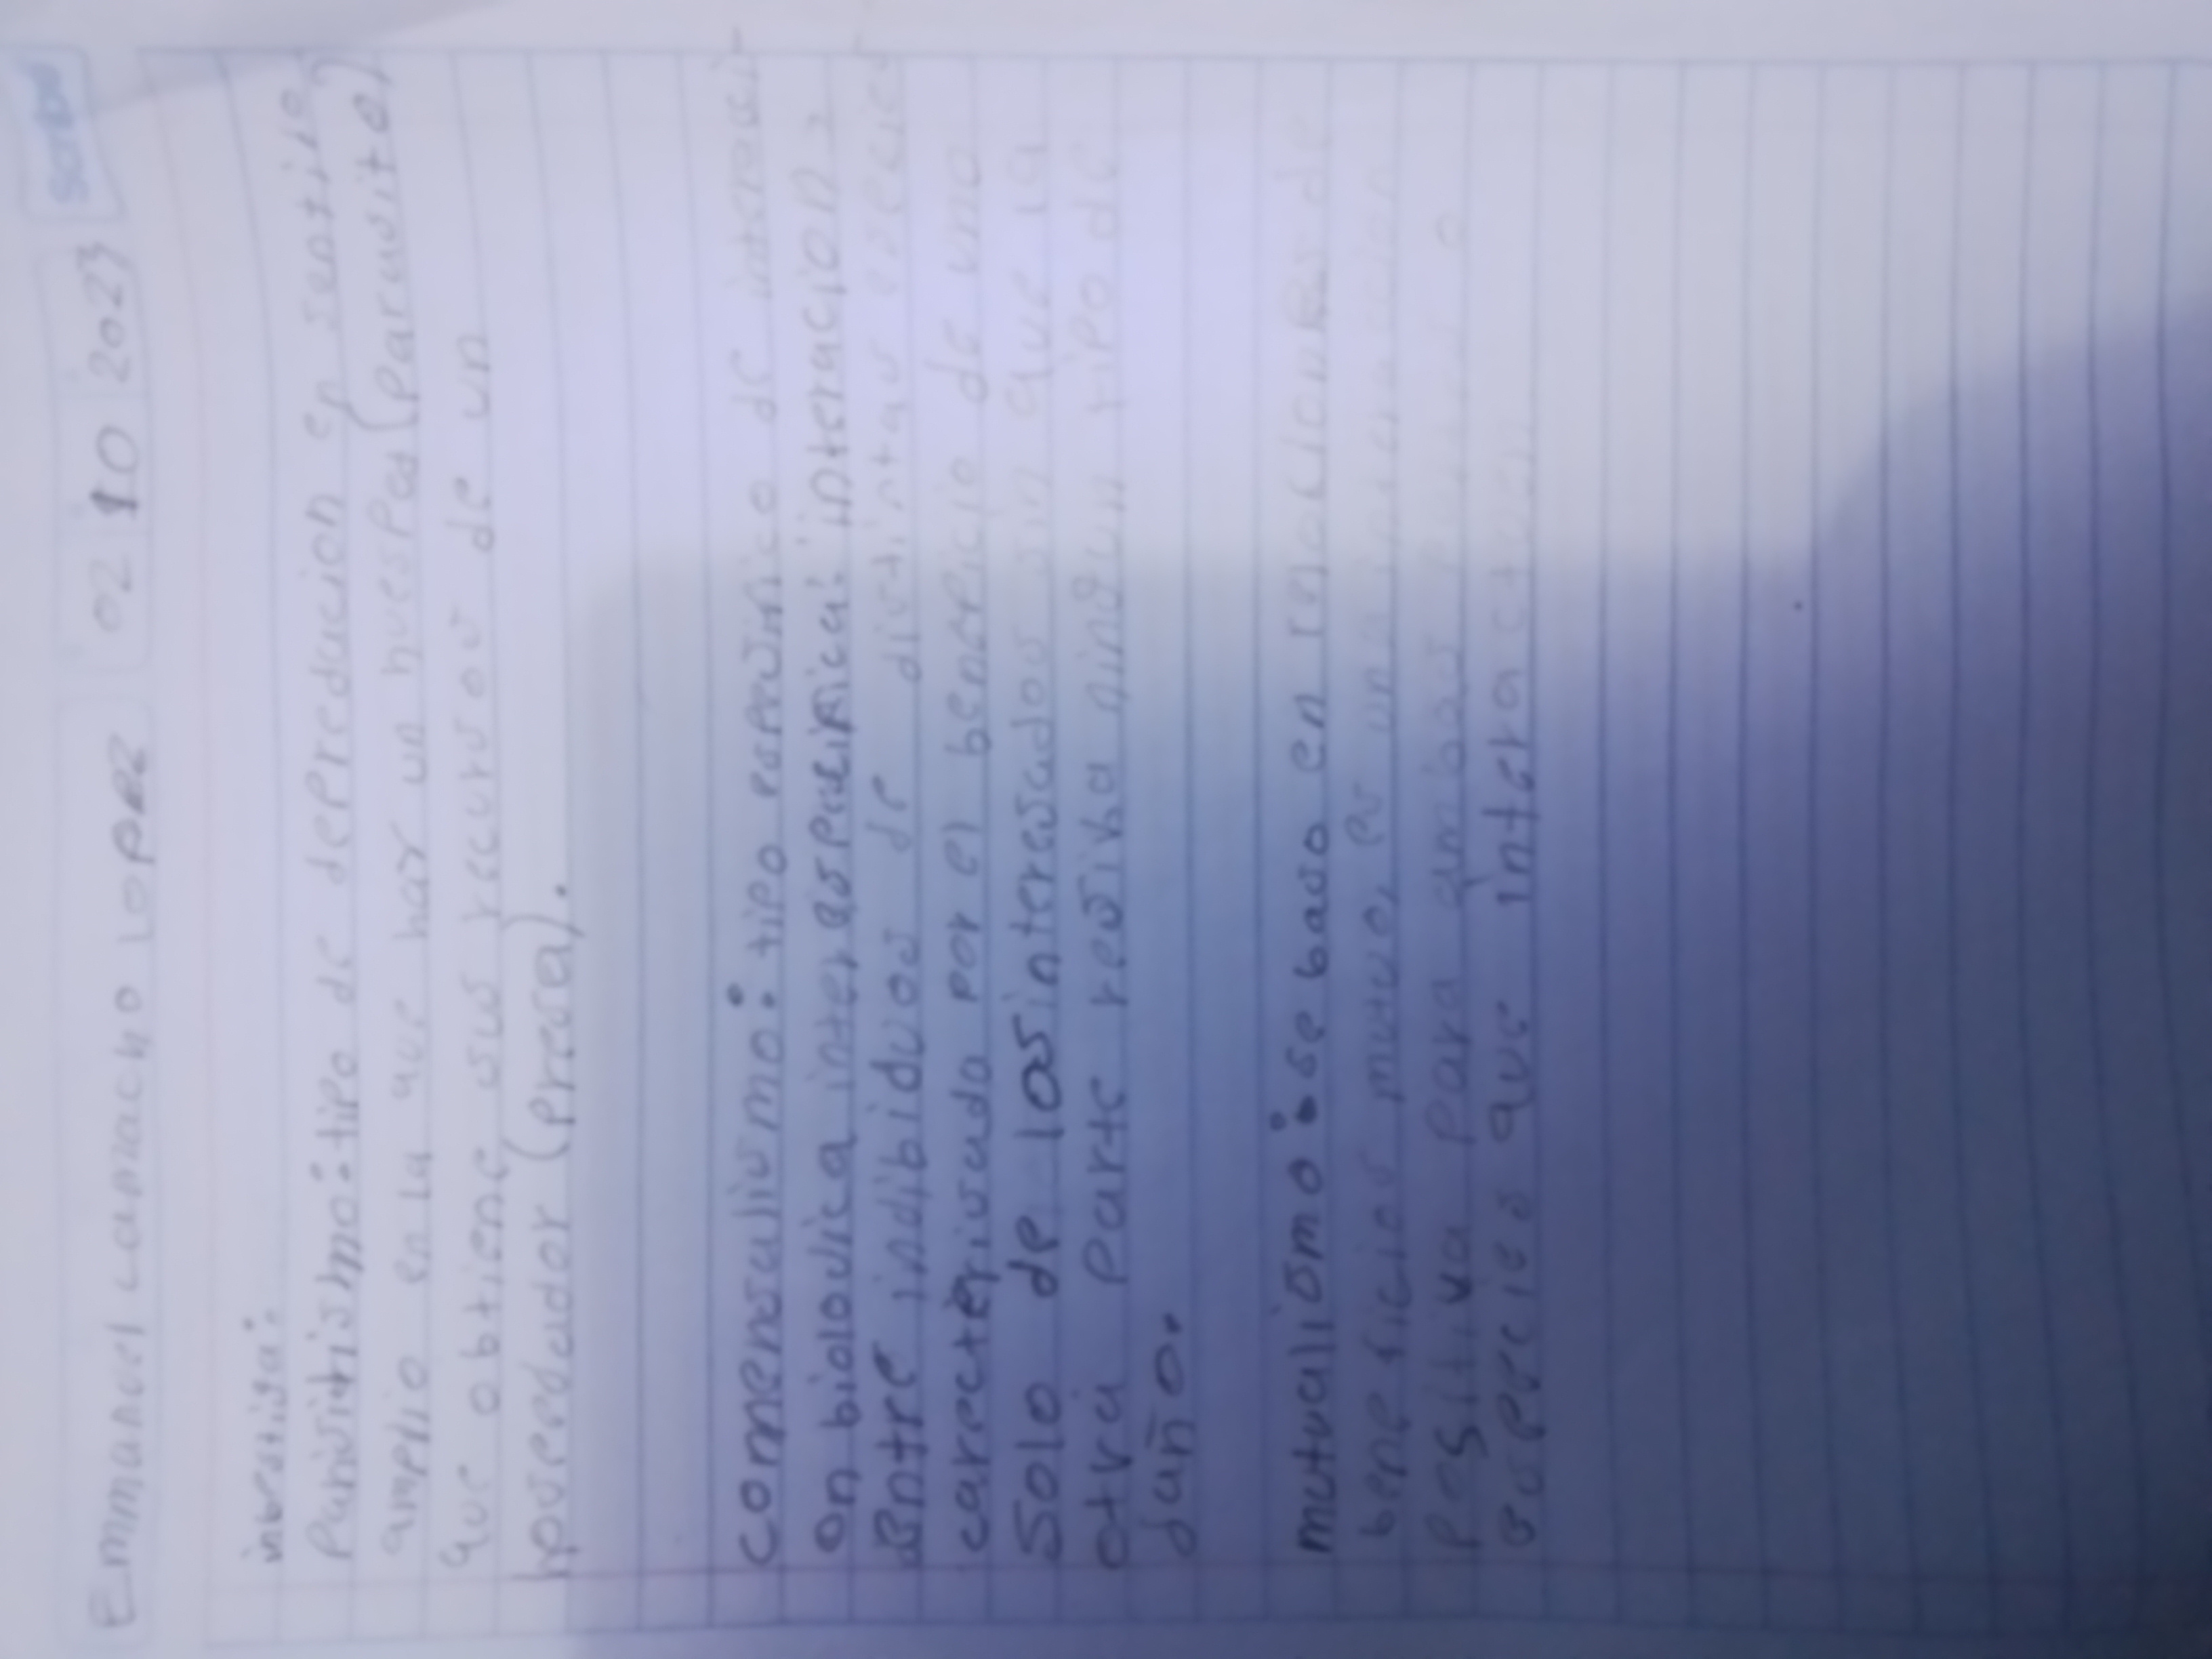 Emmanuel camacho lopez 02 10 2023 Scribe
inbestiga:
Parisitismo: tipo de depredacion en sentido
amplio en la que hay un huesped (parasito)
que obtiene sus recursos de un
hospedador (presa).
comensalismo: tipo especifico de
on biolovica interespecifica: interacion
Entre indibiduos de distintas
carecterisada por el beneficio de uno
Solo de los interesados sin que la
otra parte resiba ningun tipo de
daño.
mutualismo: se basa en de
beneficios mutuo, es una
positiva para ambas
especies que interactuan